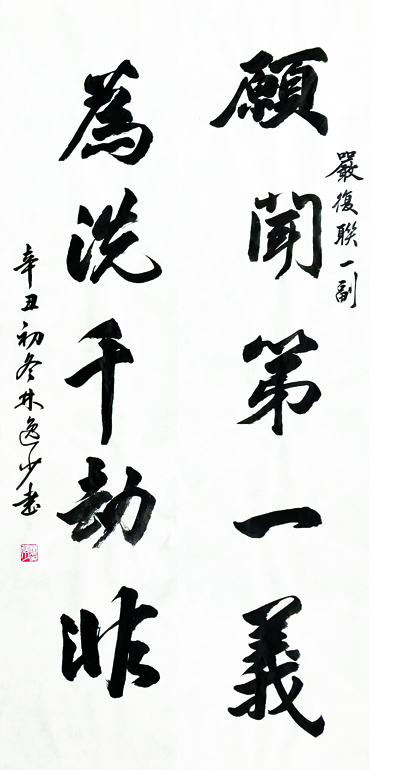 嚴復聯一副
願聞第一義
為洗千劫非
辛丑初冬林逸少書